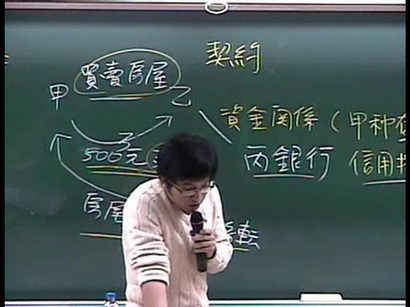 契約
買賣房屋
甲 乙
資金関係(甲种
500元
丙銀行 信用
房屋 移転